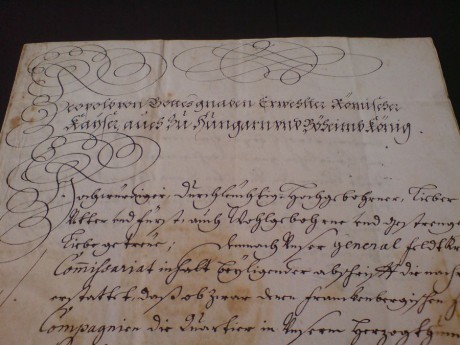 Leopold von Gottes gnaden Erwehlter Römischer
Kayser, auch zu Hungarn und Böheimb König.
Hochwürdiger, Durchleuchtig-Hochgebohrner, Lieber
Vetter und fürst, auch Wohlgebohrne und Gestrenge
Liebe getreue; demnach Unser General feldt Kr
Commissariat inhalt beyligender abschrifft die nach
erstattet, daß ob zwar denen franckenbergischen
Compagnien die Quartier in Unserm Herzogthum